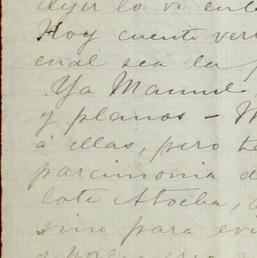 Ayer lo vi
Hoy cuente
cual sea la
Ya Manuel
y planos -
á ellas, pero
parcimonia d
lote Atocha,
sino para evi